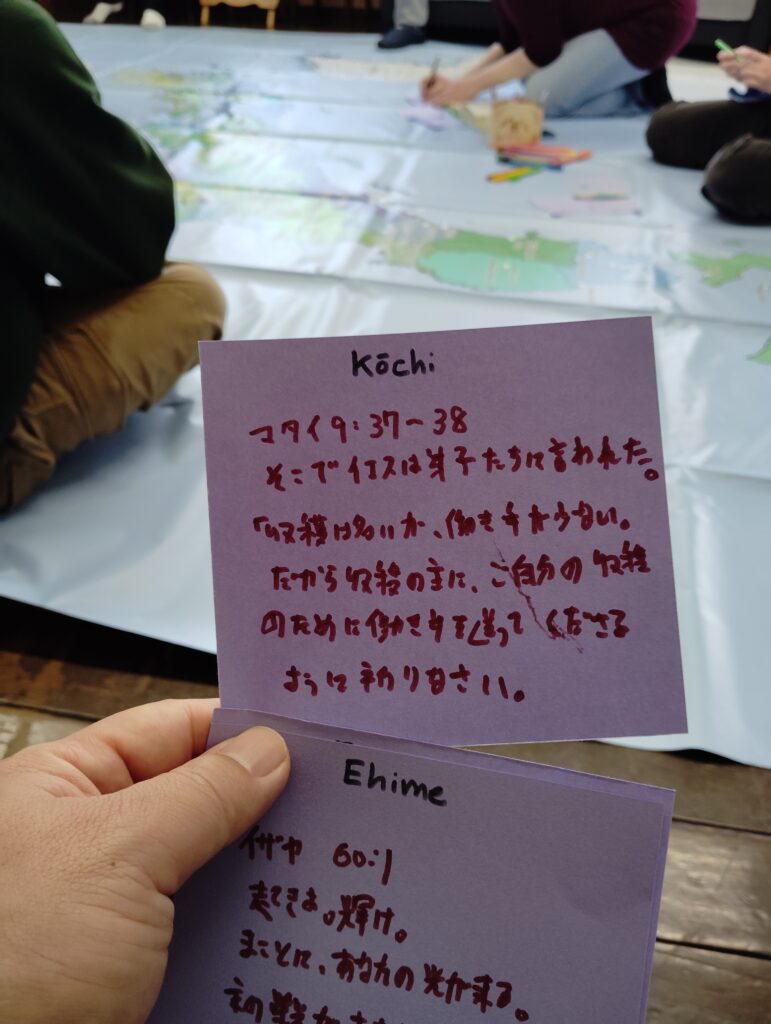 Kōchi
マタイ9:37-38
そこでイエスは弟子たちに言われた。
「収穫は多いが、働き手が少ない。
だから収穫の主に、ご自分の収穫
のために働き手を送って くださる
ように祈りなさい。
Ehime
イザヤ 60:1
起きよ。輝け。
まことに、あなたの光が来る。